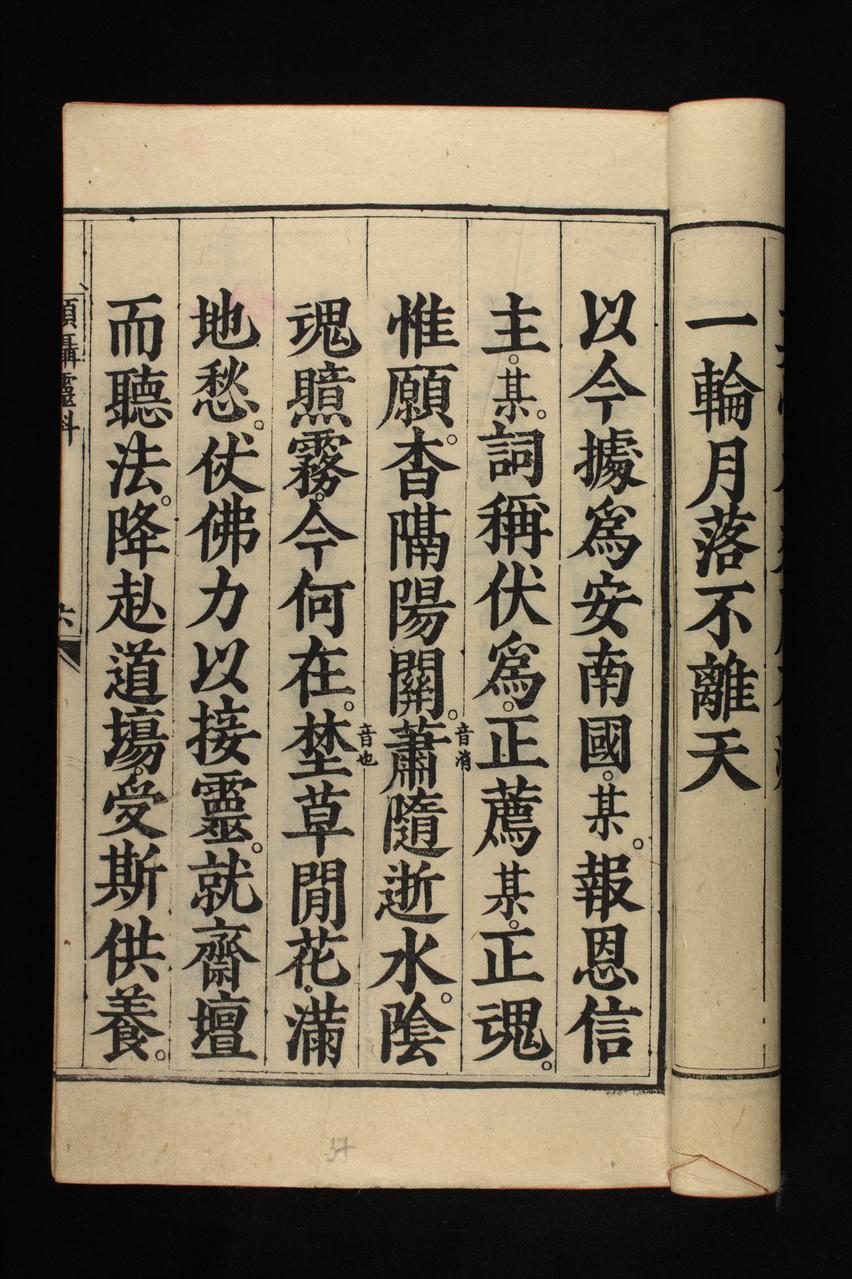 一輪月落不離天
以今據爲安南國。某。報恩信
主。某。詞稱伏爲。正薦某。正魂。
惟願。杳隔陽關。蕭音消隨逝水。陰
魂曀霧。今何在。埜音也草閒花。滿
地愁。伏佛力以接靈。就齋壇
而聽法。降赴道場。受斯供養。
六